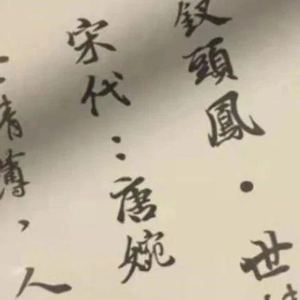 釵頭鳳·世
宋代:唐婉
情薄,人